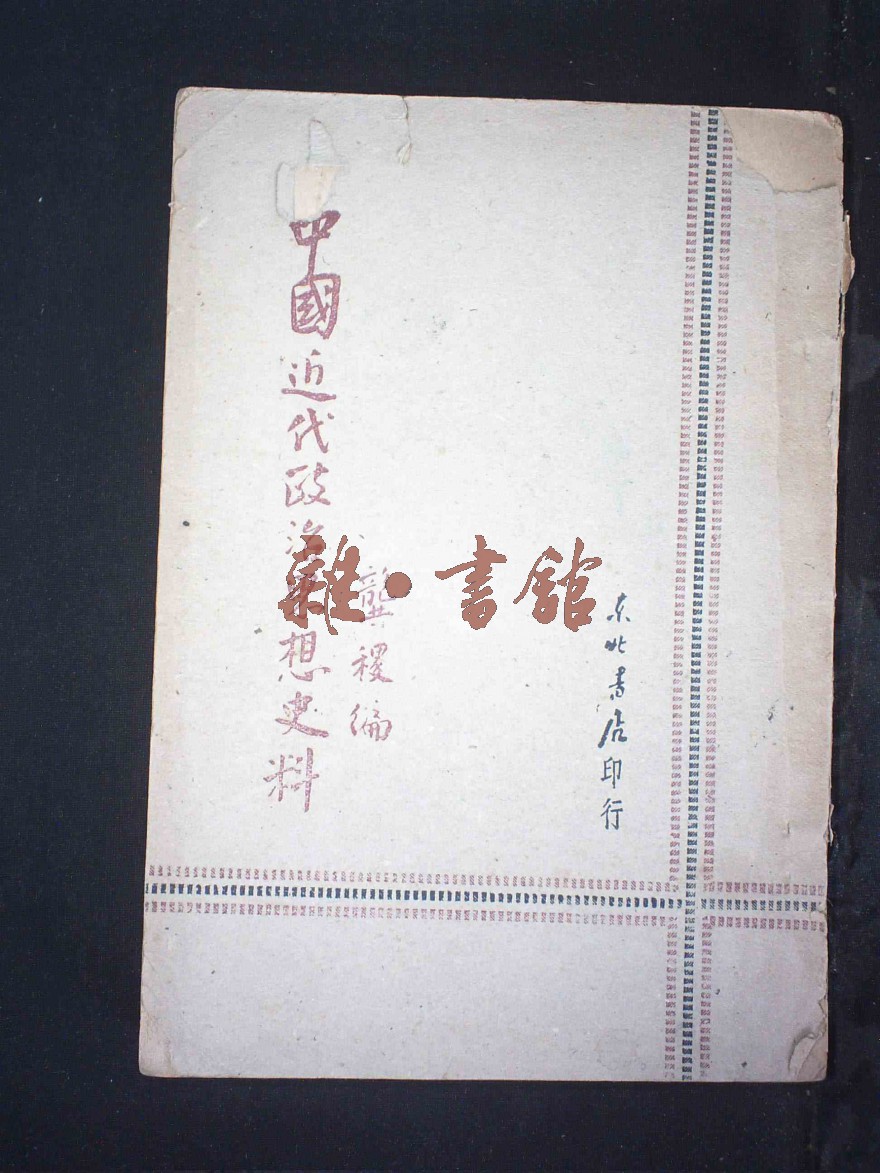 中國近代政治思想史料
龔稷編
东北書店印行
雜·書館